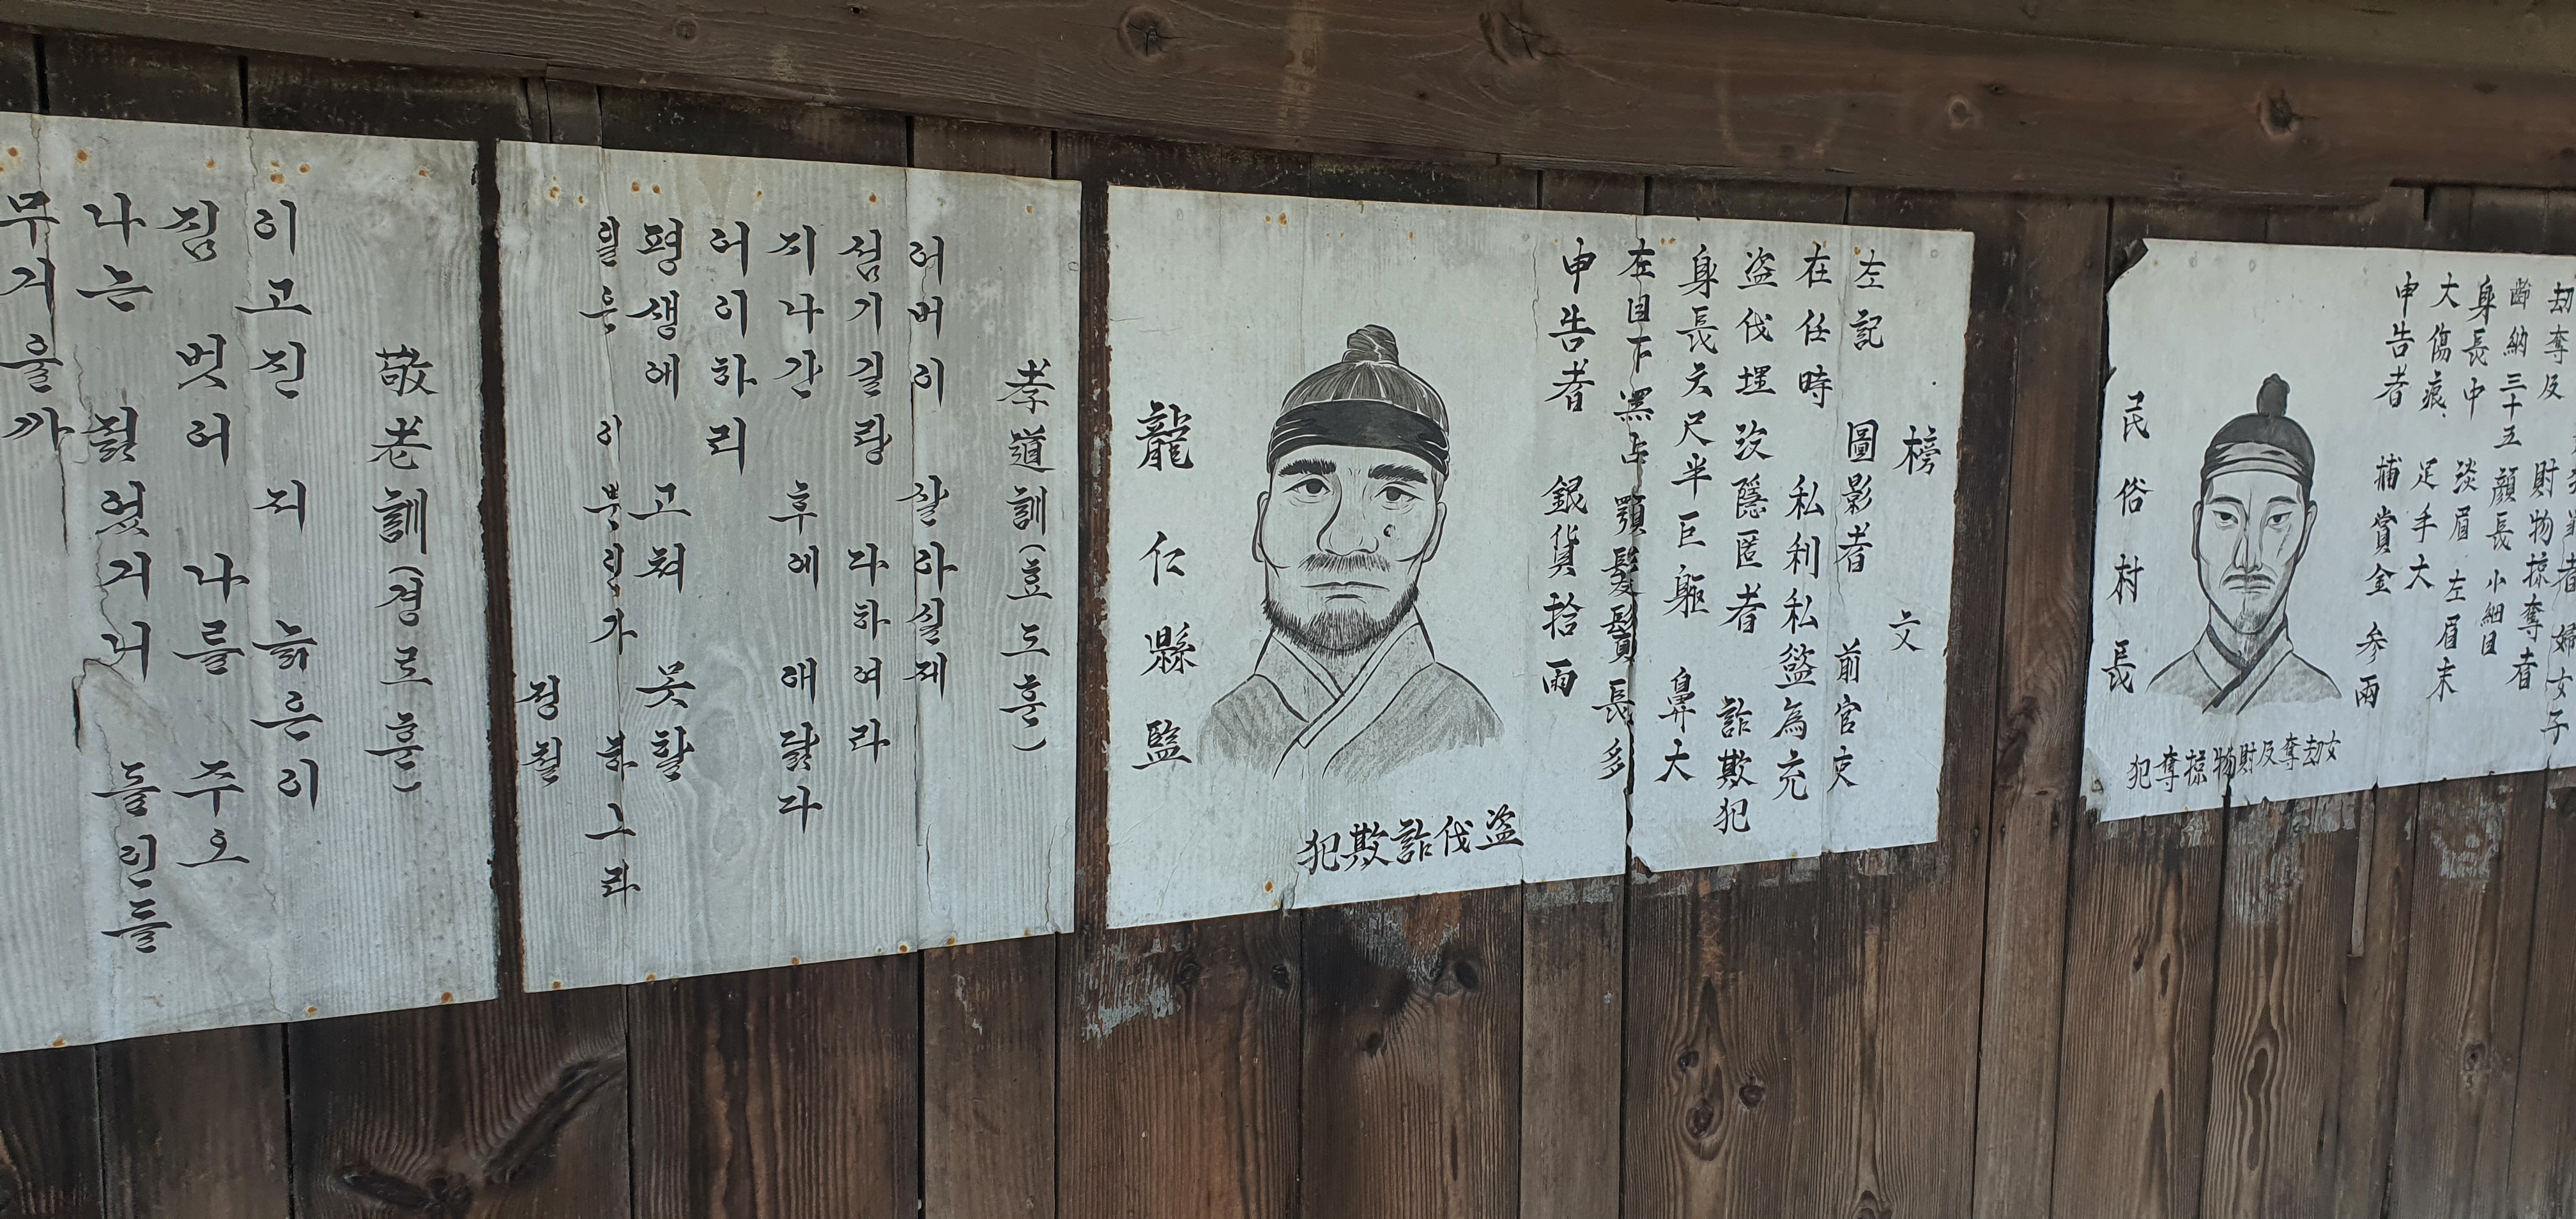 敬老訓(경로훈)
이고진 저 늙은이
짐 벗어 나를 주오
나는 젊었거니 돌인들
무거울까
孝道訓(효도훈)
어버이 살아실제
섬기길랑 다하여라
지나간 후에 애닲다
어이하리
평생에 고쳐 못할
일은 이뿐인가 하그라
정철
榜 文
左記 圖影者 前官吏
在任時 私利私慾為充
盗伐埋没隱匿者 詐欺犯
身長六尺半巨軀 鼻大
在目下黑占顎髮鬚長多
申告者 銀貨拾兩
龍仁縣監
犯欺詐伐盗
劫奪及
婦女子
財物掠奪者
齢納三十五 顔長 小細目
身長中 淡眉 左眉末
大傷痕 足手大
申告者 捕賞金 參兩
民俗村長
犯奪掠物財及奪劫女